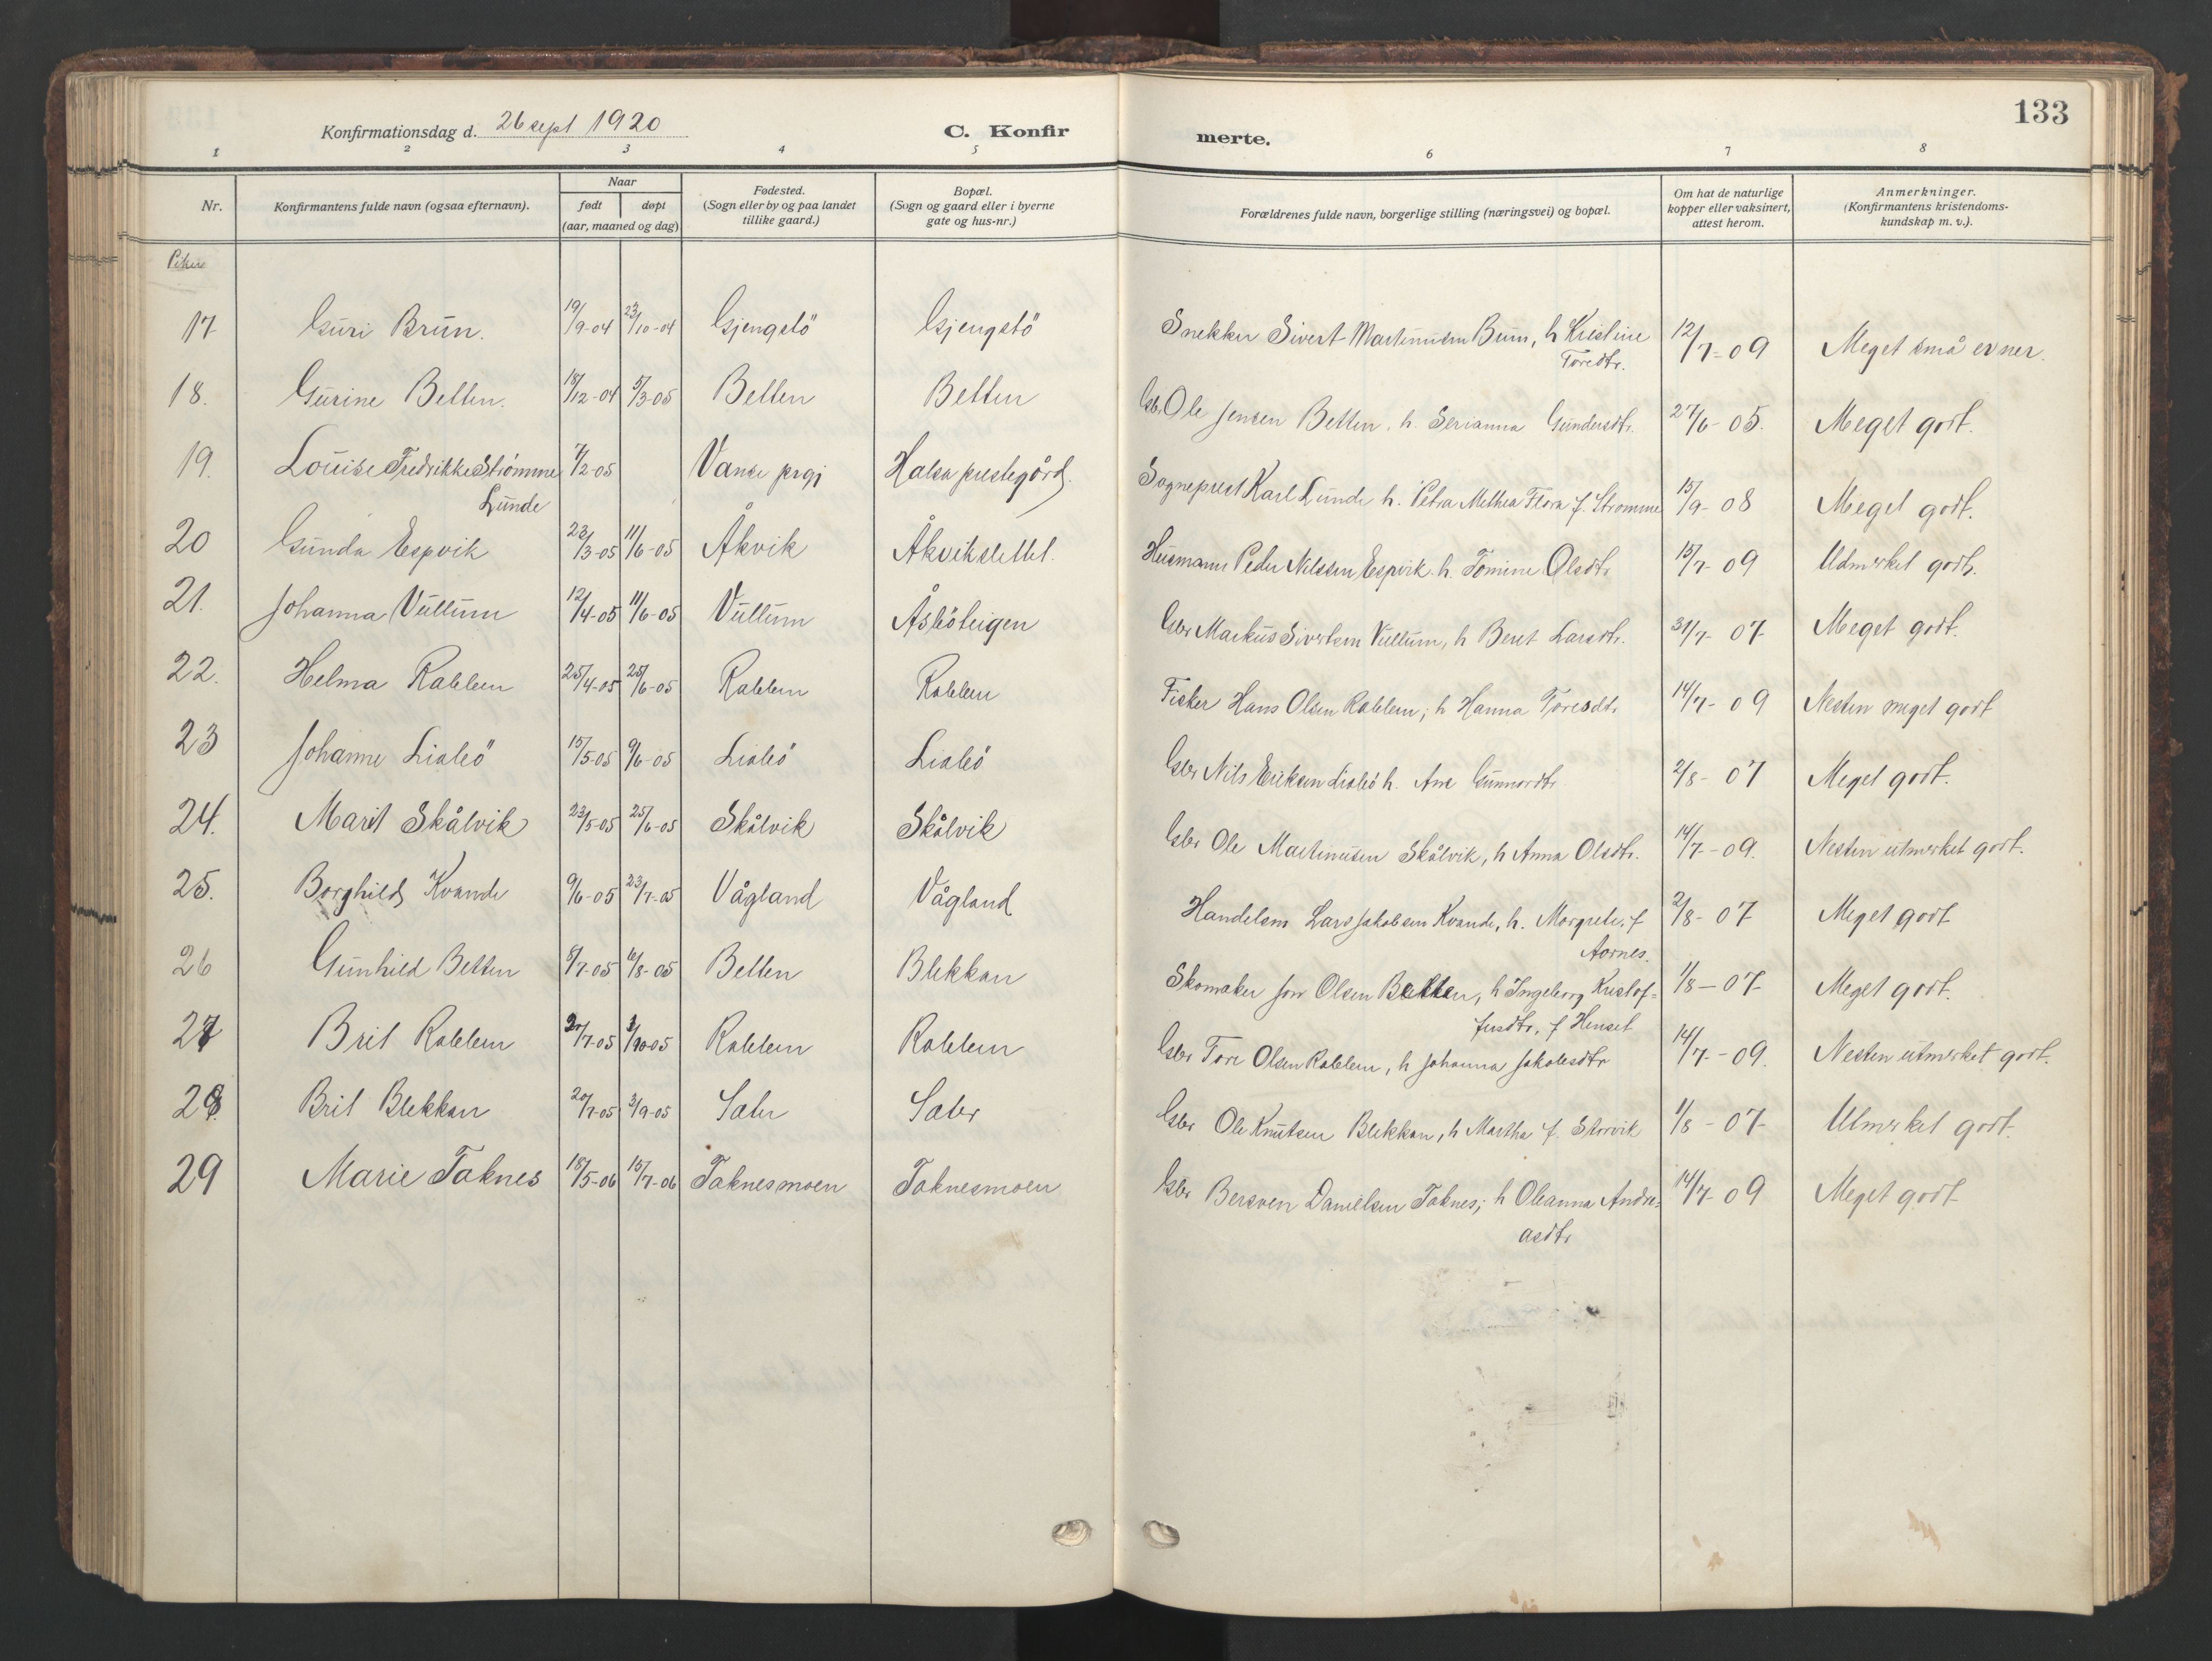 133
Konfirmationsdag d. 26 sept 1920
C. Konfir
merte.
1 2 3 4 5 6 7 8
Nr.
Konfirmantens fulde navn (ogsaa efternavn).
Naar
født
døpt
(aar, maaned og dag)
Fødested.
(Sogn eller by og paa landet
tillike gaard.)
Bopæl.
(Sogn og gaard eller i byerne
gate og hus-nr.)
Forældrenes fulde navn, borgerlige stilling (næringsvei) og bopæl.
Om hat de naturlige
kopper eller vaksinert,
attest herom.
Anmerkninger.
(Konfirmantens kristendoms-
kundskap m. v.).
Piker
17 Guri Brun. 19/9-04 23/10-04 Gjengstö Gjengstö Snekker Sivert Martinusen Brun, h Kristine
Toredtr. 12/7-09 Meget små evner.
18. Gurine Betten. 18/12-04 5/3-05 Betten Betten Gbr. Ole Jensen Betten, h. Serianna Gundersdtr. 27/6-05. Meget godt.
19. Louise Fredrikke Strömme
Lunde 7/2-05 Vanse prgj Halsa prestegård. Sogneprest Karl Lunde h. Petra Methea Flora f. Strömme 15/9-08 Meget godt.
20 Gunda Espvik 23/3-05 11/6-05 Åkvik Åkvikslettet. Husmann Peder Nilssen Espvik h. Tomine Olsdtr 15/7-09 Udmerket godt.
21. Johanna Vullum 12/4-05 11/6-05 Vullum Åsböteigen Gbr Markus Sivertsen Vullum, h Beret Larsdtr. 31/7-07 Meget godt.
22. Helma Rabben 25/4-05 25/6-05 Rabben Rabben Fisker Hans Olsen Rabben, h Hanna Toresdtr 14/7-09 Nesten meget godt
23 Johanne Liabö 15/5-05 9/6-05 Liabö Liabö Gbr Nils Eriksen Liabö h. Ane Gunnardtr 2/8-07 Meget godt.
24. Marit Skålvik 23/5-05 25/6-05 Skålvik Skålvik Gbr Ole Martinusen Skålvik, h Anna Olsdtr. 14/7-09. Nesten utmerket godt.
25. Borghild Kvande 9/6-05 23/7-05 Vågland Vågland Handelsm Lars Jakobsen Kvande, h. Margrete, f
Aarnes. 2/8-07 Meget godt
26 Gunhild Betten 8/7-05 6/8-05 Betten Blekkan Skomaker Jon Olsen Betten, h Ingeborg Kristof-
fersdtr, f Henset 1/8-07 Meget godt.
27 Brit Rabben 2/7-05 1/10-05 Rabben Rabben Gbr Tore Olsen Rabben, h Johanna Jakobsdtr 14/7-09. Nesten utmerket godt.
28. Brit Blekkan 20/7-05 3/9-05 Sæter Sæter Gbr Ole Knutsen Blekkan, h Martha f. Storvik 1/8-07 Utmerket godt.
29 Marie Taknes 18/5-06 15/7-06 Taknesmoen Taknesmoen Gbr Bersven Danielsen Taknes, h Oleanna Andre-
asdtr 14/7-09 Meget godt